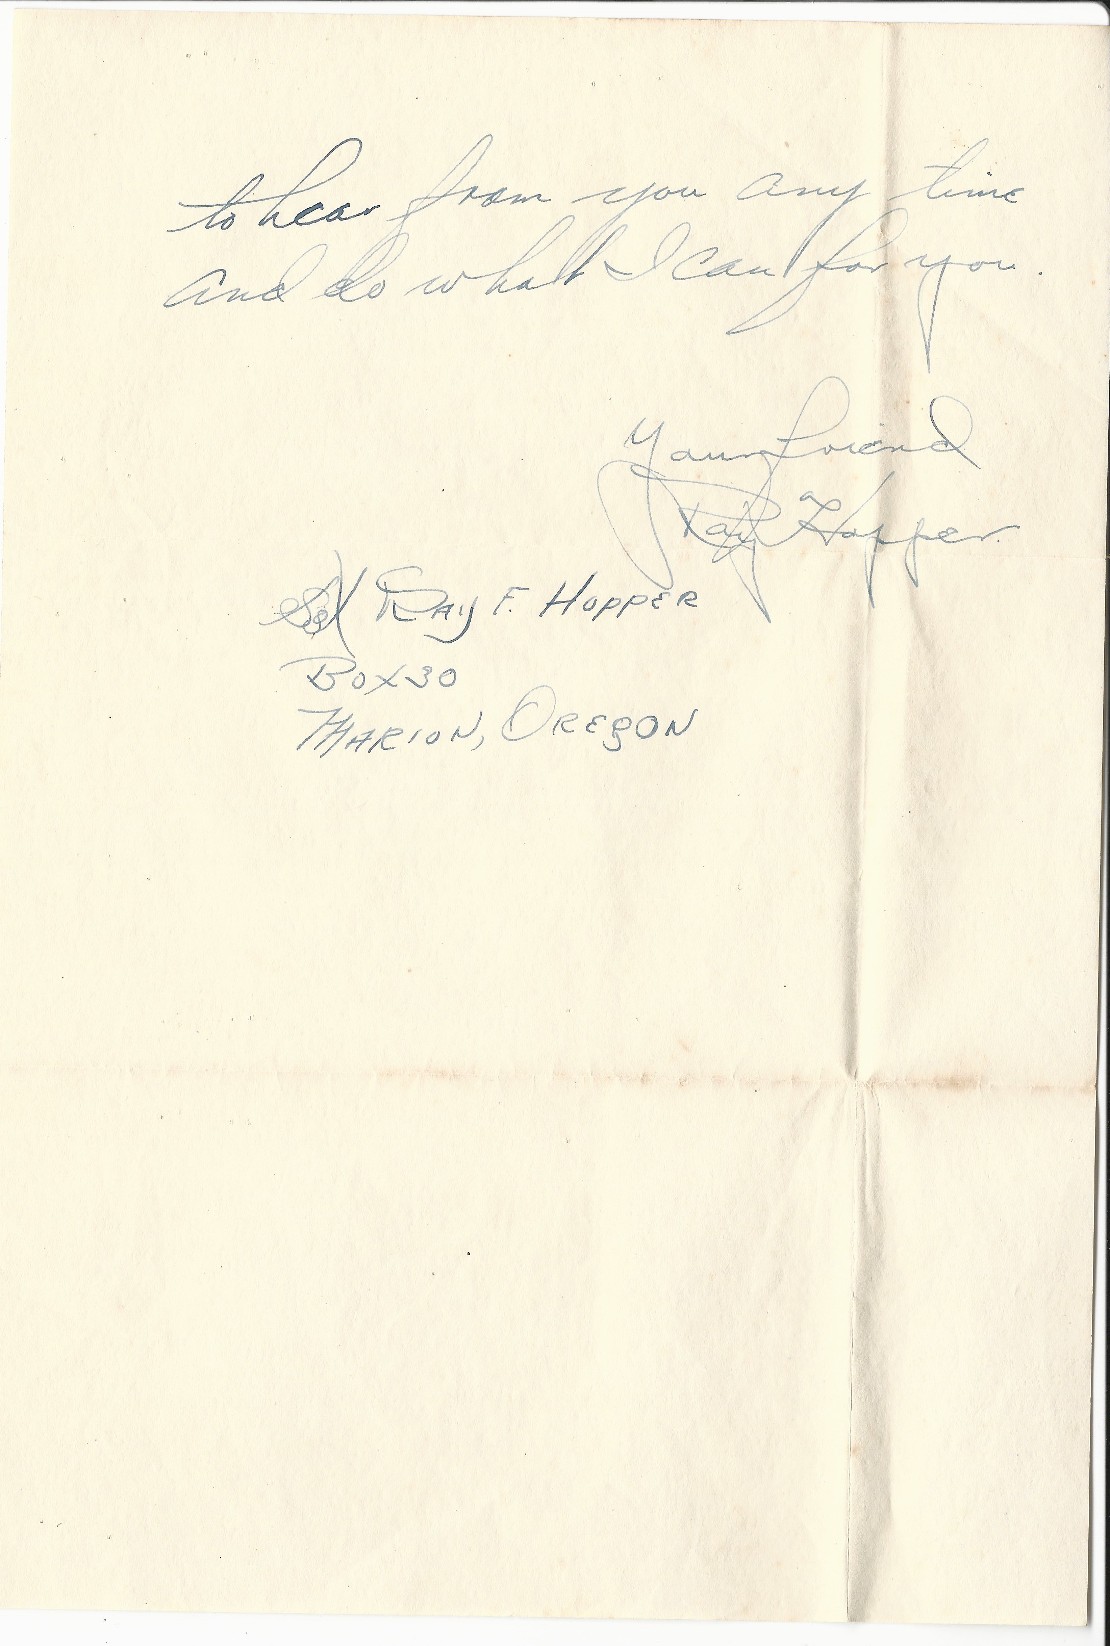 to hear from you any time
and do what I can for you.
Your friend
Ray Hopper.
RAY F. HOPPER
BOX 30
MARION, OREGON